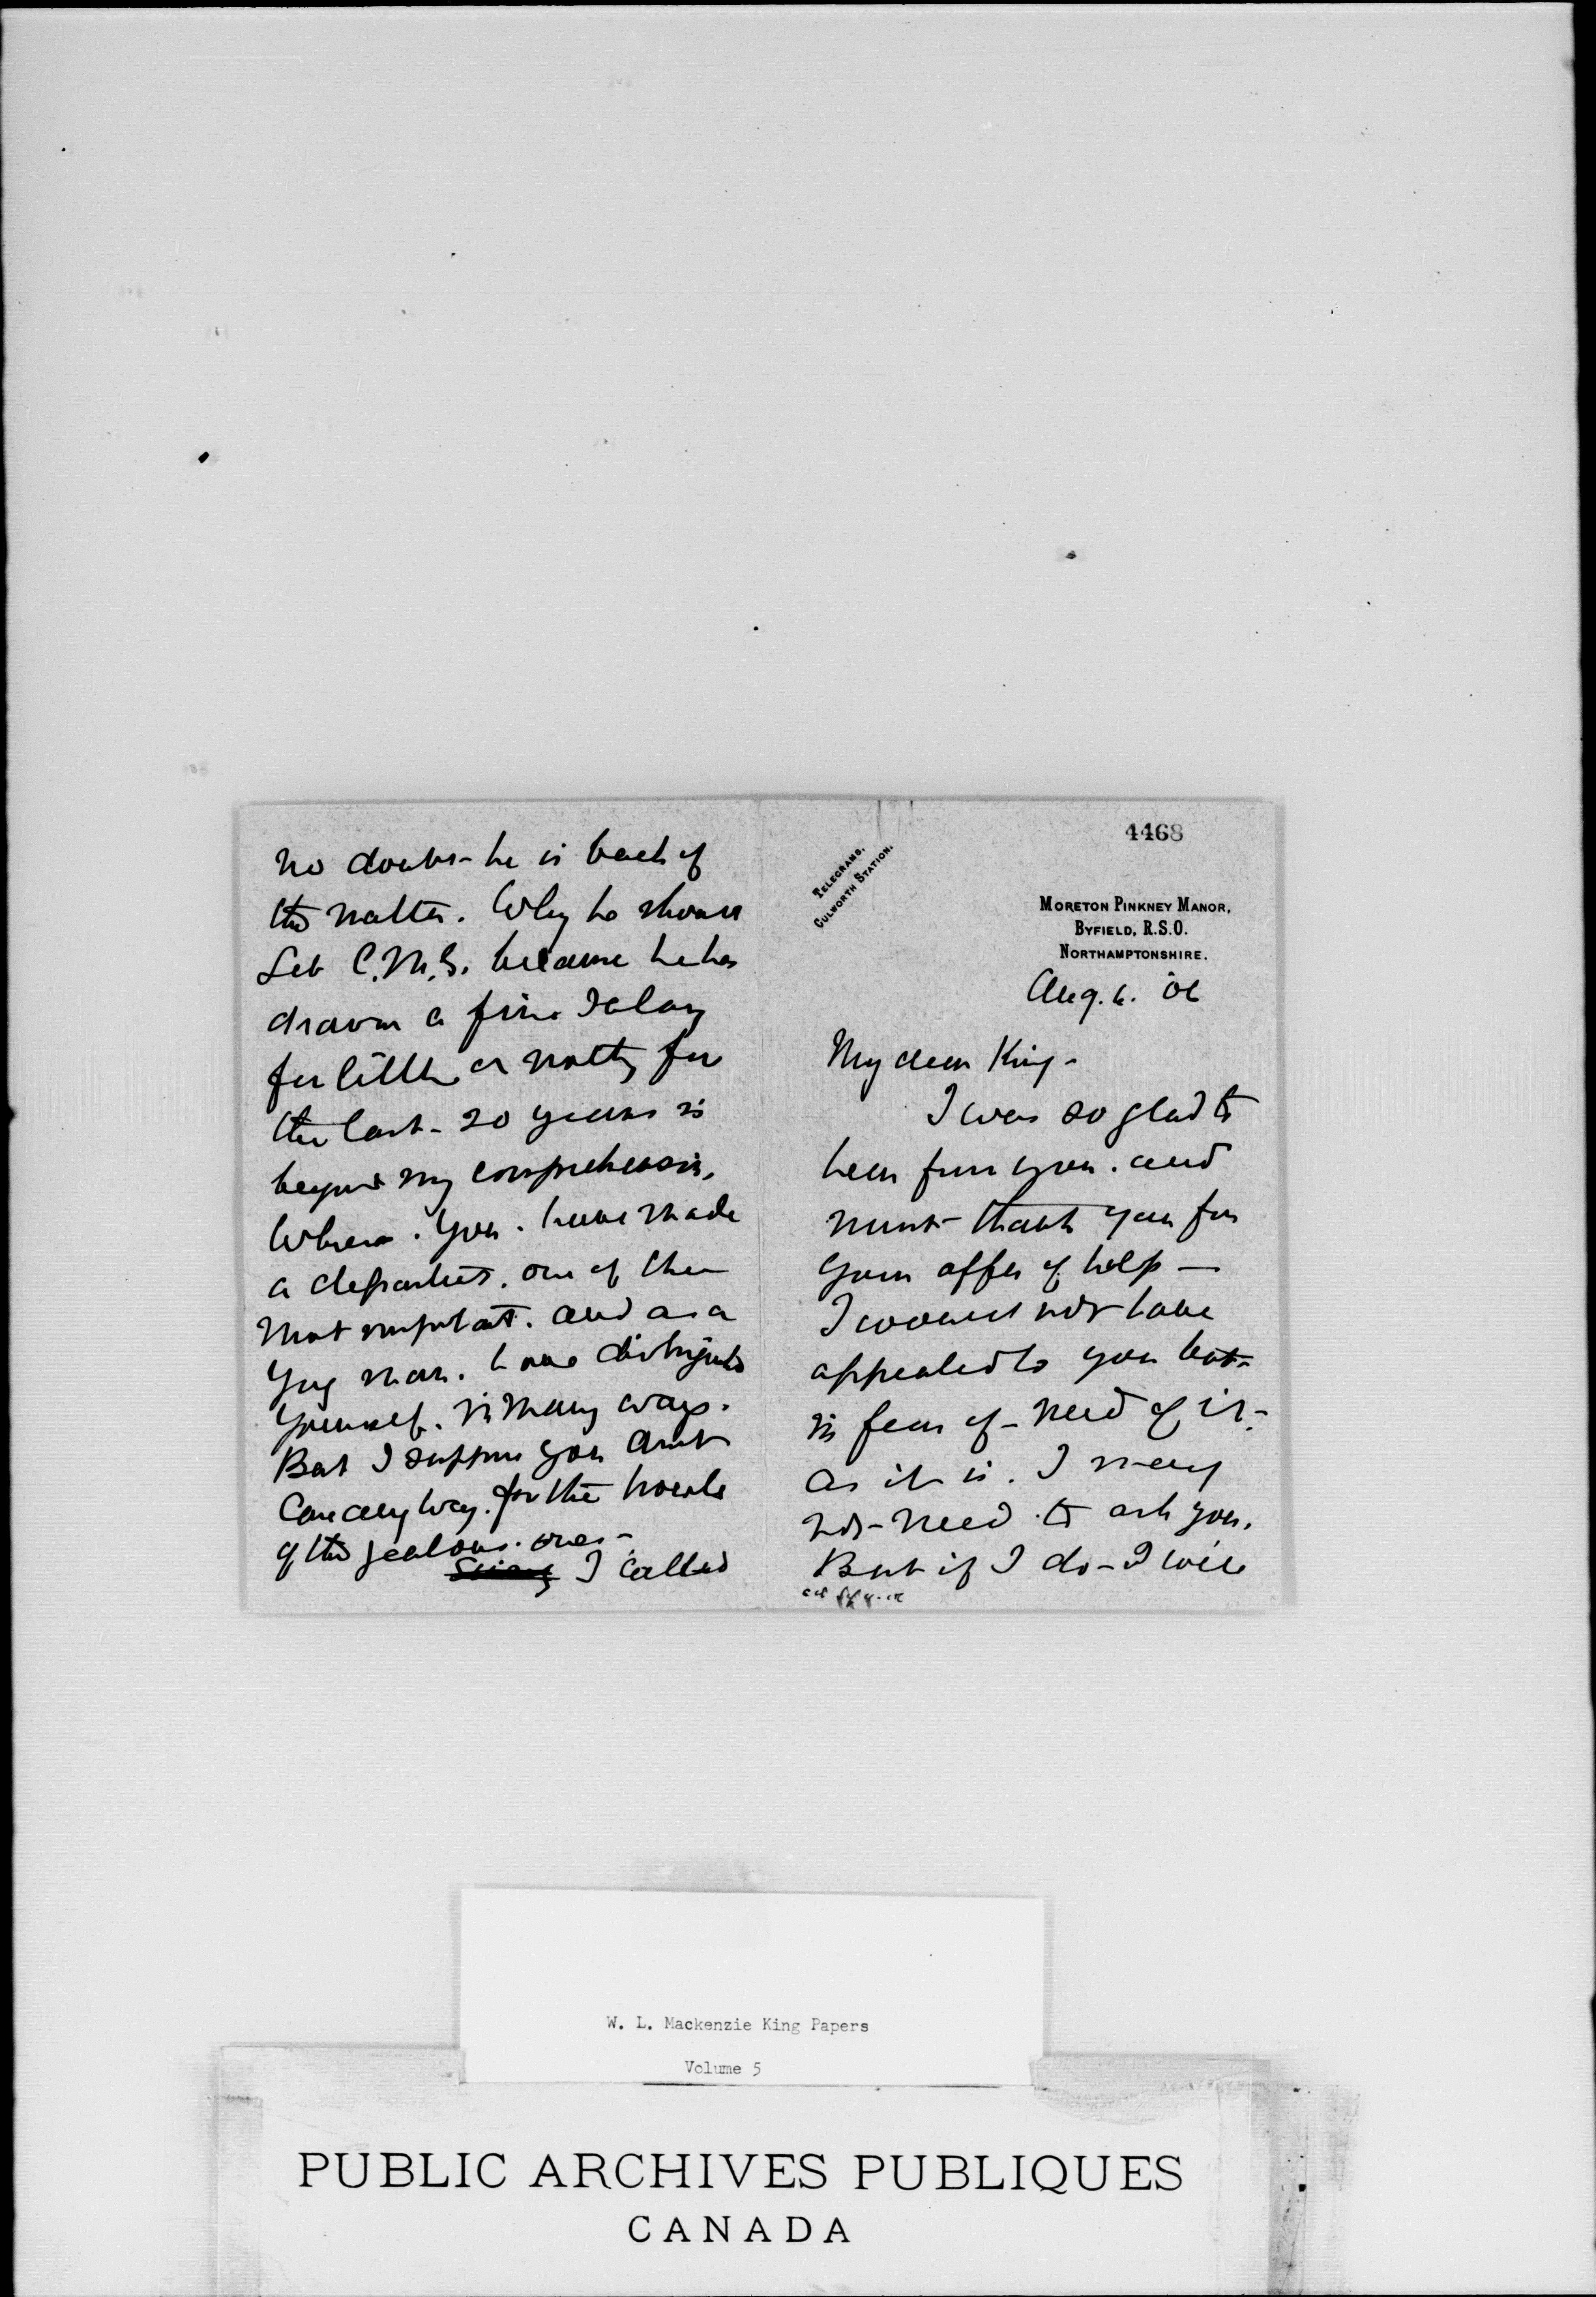 4468
TELEGRAMS,
CULWORTH STATION.
MORETON PINKNEY MANOR,
BYFIELD, R.S.O.
NORTHAMPTONSHIRE.
Aug. 6. '06
My dear King-
I was so glad to
hear from you. and
must thank you for
your offer of help —
I would not have
appealed to you but
in fear of - need of it -
as it is. I may
not - need to ask you.
But if I do - I will
no doubt - he is back of
the matter. Why he should
get C.M.G. because he has
drawn a fine salary
for little or nothing for
the last - 20 years is
beyond my comprehension.
Whereas. you. have made
a department. one of the
most important. and as a
young man. have distinguished
yourself. in many ways.
But I suppose you don't
care any way. for the howls
of the jealous. ones -
I called
W. L. Mackenzie King Papers
Volume 5
PUBLIC ARCHIVES PUBLIQUES
CANADA